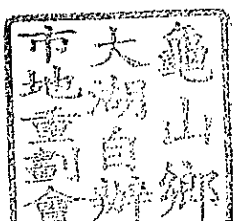 龜山鄉
大湖自辦
市地重劃會